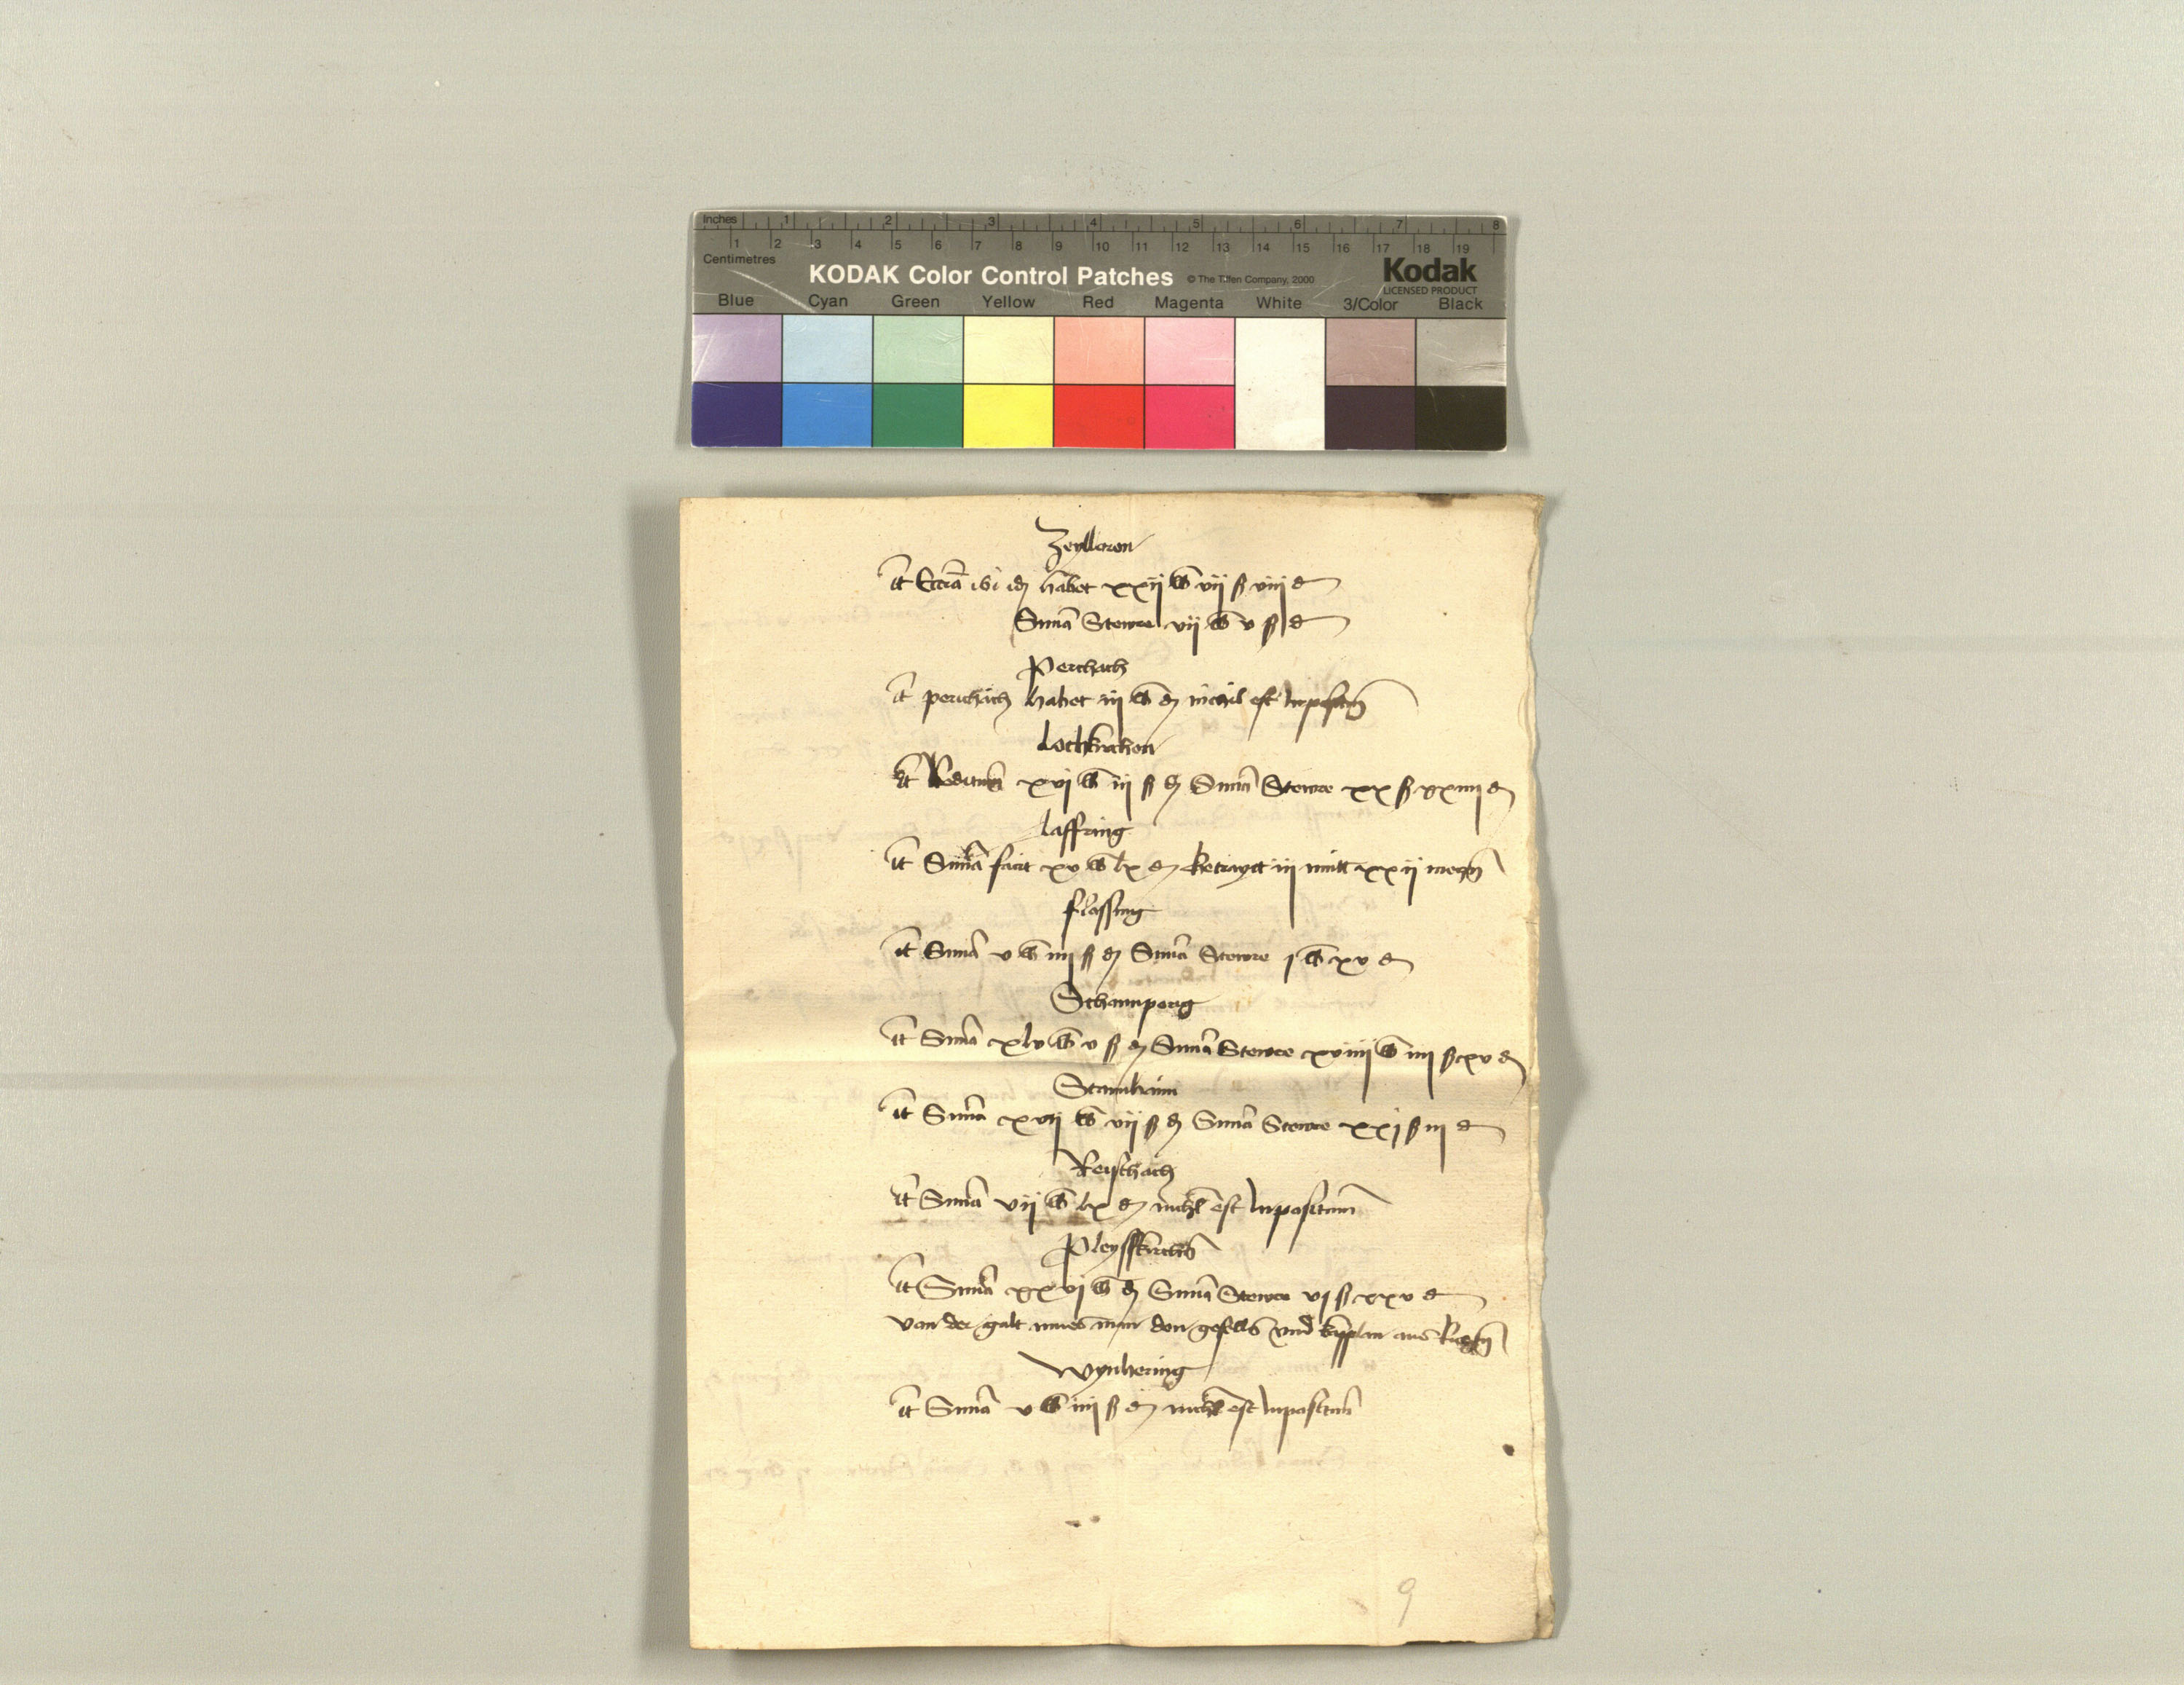 Inches 1 2 3 4 5 6 7 8
1 2 3 4 5 6 7 8 9 10 11 12 13 14 15 16 17 18 19
Centimetres
KODAK Color Control Patches © The Tiffen Company, 2000 Kodak
LICENSED PRODUCT
Blue Cyan Green Yellow Red Magenta White 3/Color Black
Zeyllaron
It Eccia ibi habet xxij lb vij ß viij d
Suma Stewre vij lb v ß d
Perchach
It perchach habet iij lb d nichil est Inpositum
Lochkirchen
It xvj lb iij ß d Suma Stewre xx ß xxiiij d
laffring
It Suma facit xv lb lx d Getraydt iij mutt xxij meczn
flossing
It Suma v lb iiij ß d Suma Stewre j lb xv d
Schaumperg
It Suma xlv lb v ß d Suma Stewre xviiij lb iiij ß xv d
Stamhaim
It Suma xvij lb vij ß d Suma Stewre xxj ß iij d
Reyschach
It Suma vij lb lx d nichil est Inpositum
Pleyskirchen
It Suma xxvj lb d Suma Stewre vj ß xxv d
von der gult mues man den geselln vnd kapplan aus
Wynhering
It Suma v lb iiij ß d nichil est Inpositum
9